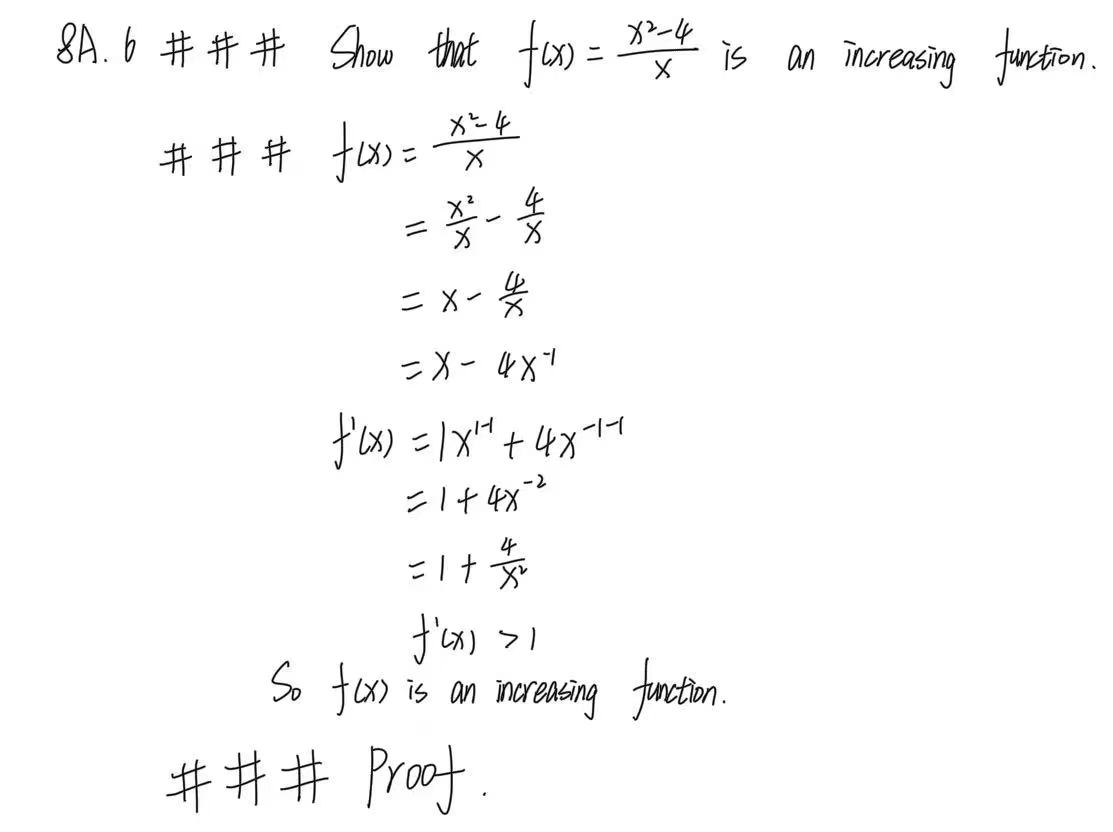 8A.6 # # # Show that f(x) = \frac{x²-4}{x} is an increasing function.
# # # f(x) = \frac{x²-4}{x}
= \frac{x²}{x} - \frac{4}{x}
= x - \frac{4}{x}
= x - 4x⁻¹
f'(x) = 1x¹⁻¹ + 4x⁻¹⁻¹
= 1 + 4x⁻²
= 1 + \frac{4}{x²}
f'(x) > 1
So f(x) is an increasing function.
# # # Proof.